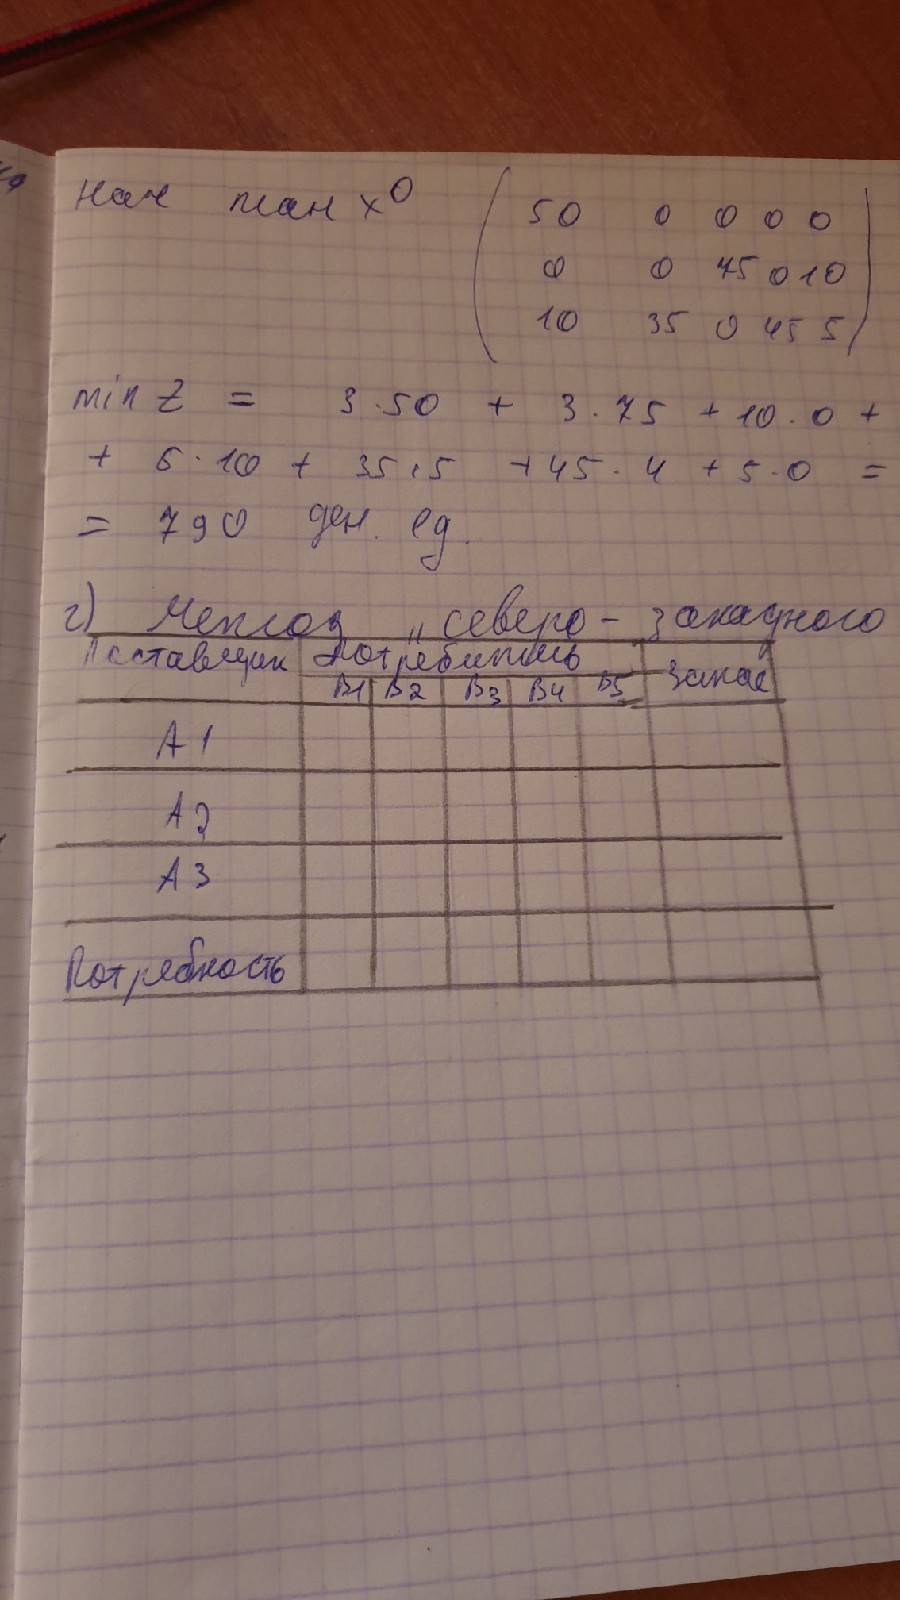 Нач план x⁰ ( 50 0 0 0 0
0 0 75 0 10
10 35 0 45 5 )
min Z = 3·50 + 3·75 + 10·0 +
+ 6·10 + 35·5 + 45·4 + 5·0 =
= 790 ден. ед.
г) Метод „северо-западного
Поставщик Потребитель Запас
B1 B2 B3 B4 B5
A1
A2
A3
Потребность